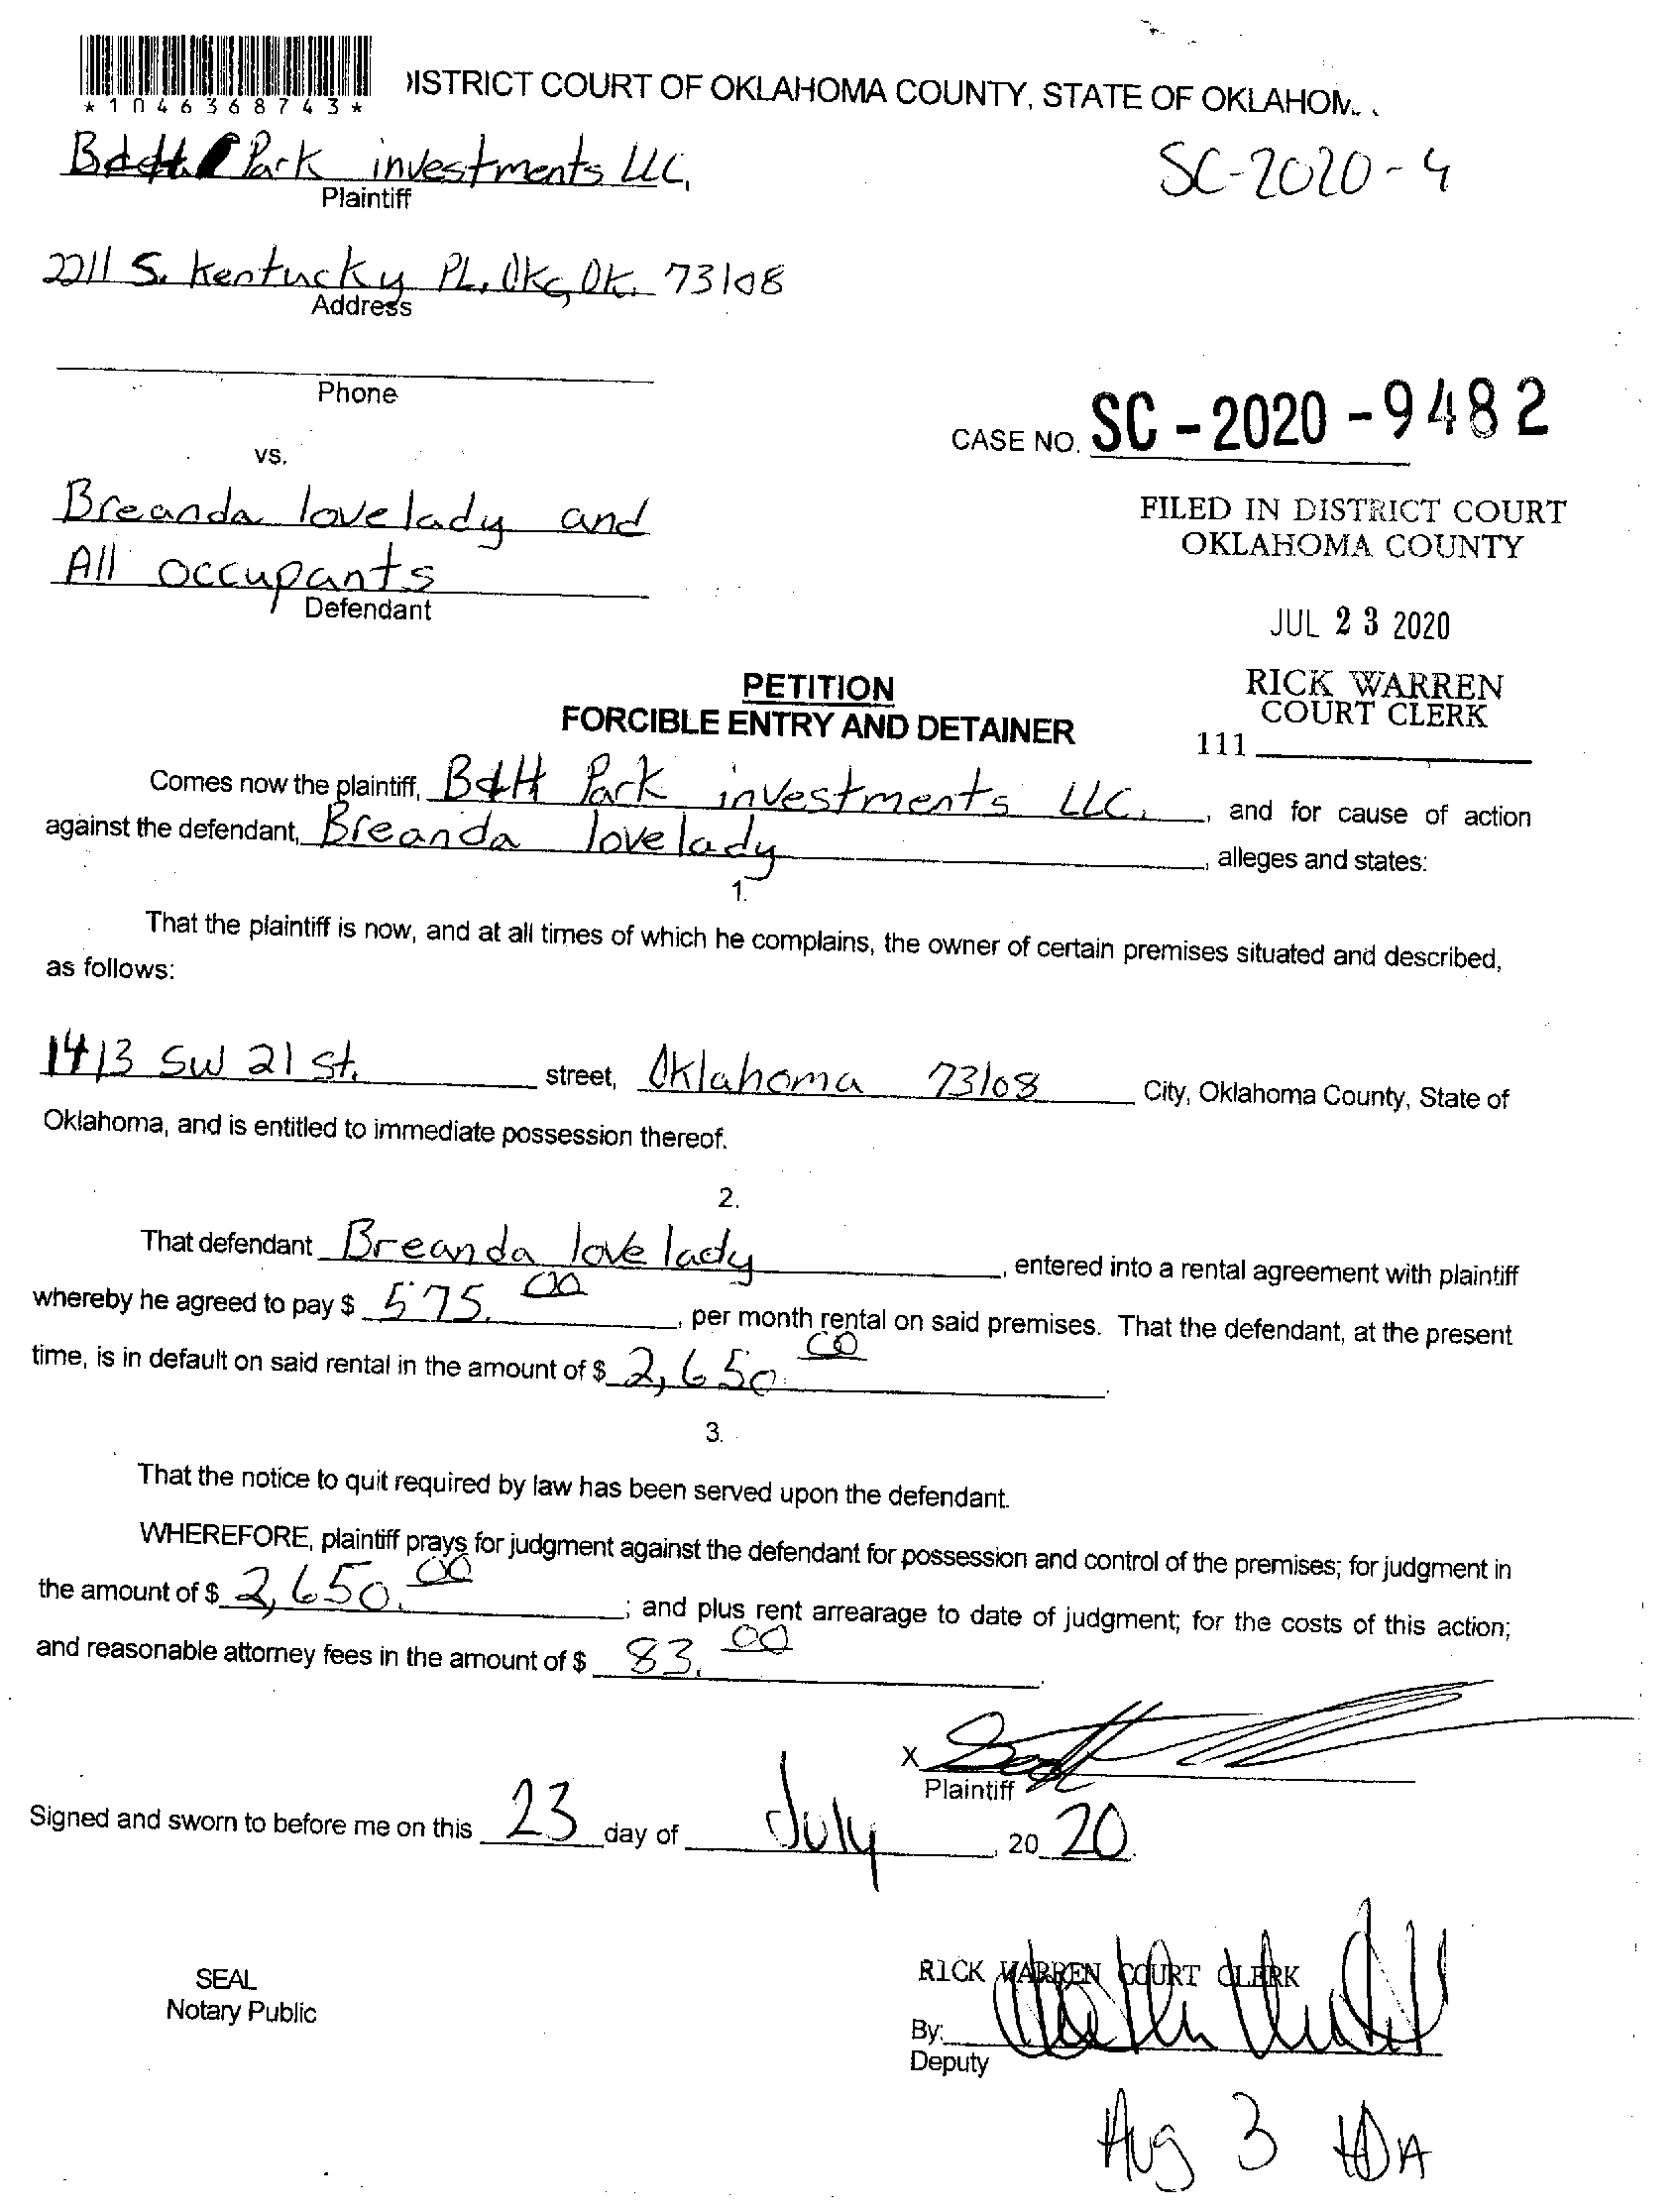 *1046368743*
DISTRICT COURT OF OKLAHOMA COUNTY, STATE OF OKLAHOM
Park investments LLC,
Plaintiff
SC-2020-4
2211 S. Kentucky PL. Okc, Ok. 73108
Address
Phone
CASE NO. SC-2020-9482
vs.
Breanda lovelady and
All occupants
Defendant
FILED IN DISTRICT COURT
OKLAHOMA COUNTY
JUL 23 2020
RICK WARREN
COURT CLERK
111
PETITION
FORCIBLE ENTRY AND DETAINER
Comes now the plaintiff, B&H Park investments LLC, , and for cause of action
against the defendant, Breanda lovelady , alleges and states:
1.
That the plaintiff is now, and at all times of which he complains, the owner of certain premises situated and described,
as follows:
1413 SW 21 St. street, Oklahoma 73108 City, Oklahoma County, State of
Oklahoma, and is entitled to immediate possession thereof.
2.
That defendant Breanda lovelady , entered into a rental agreement with plaintiff
whereby he agreed to pay $ 575.00 , per month rental on said premises. That the defendant, at the present
time, is in default on said rental in the amount of $ 2,650.00 .
3.
That the notice to quit required by law has been served upon the defendant.
WHEREFORE, plaintiff prays for judgment against the defendant for possession and control of the premises; for judgment in
the amount of $ 2,650.00 ; and plus rent arrearage to date of judgment; for the costs of this action;
and reasonable attorney fees in the amount of $ 83.00 .
X
Plaintiff
Signed and sworn to before me on this 23 day of July , 20 20.
SEAL
Notary Public
RICK WARREN COURT CLERK
By:
Deputy
Aug 3